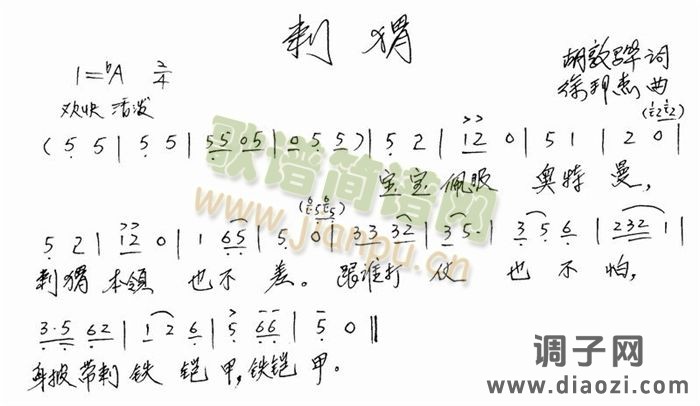 刺猬
1=♭A 2/4
胡敦骅 词
徐邦杰 曲
欢快 活泼
( 5 5 | 5 5 | 55 05 | 0 5 5 ) | 5 2 | 12 0 | 5 1 | 2 0 |
宝宝佩服 奥特曼,
5 2 | 12 0 | 1 65 | 5 0 | 33 32 | 3 5· | 3 5 6 | 232 1 |
刺猬本领 也不差。跟谁打仗 也不怕,
3·5 62 | 1 2 6 | 5 66 | 5 0 ‖
身披带刺铁铠甲,铁铠甲。
歌谱简谱网
www.jianpu.cn
调子网
www.diaozi.com